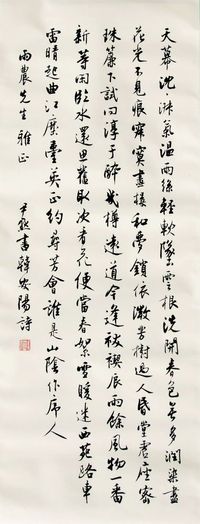 天幕沈沈淑氣溫雨絲輕軟墜雲根洗開春色無多潤染盡
花光不見痕寂寞畫樓和夢鎖依微芳樹過人昏堂虛座密
珠簾下試問淳于醉幾樽遠道今逢祓禊辰雨餘風物一番
新等閑臨水還思舊取次看花便當春絮雪暖迷西苑路車
雷晴起曲江塵臺英正約尋芳會誰是山陰作序人
雨農先生雅正
尹默書韓安陽詩